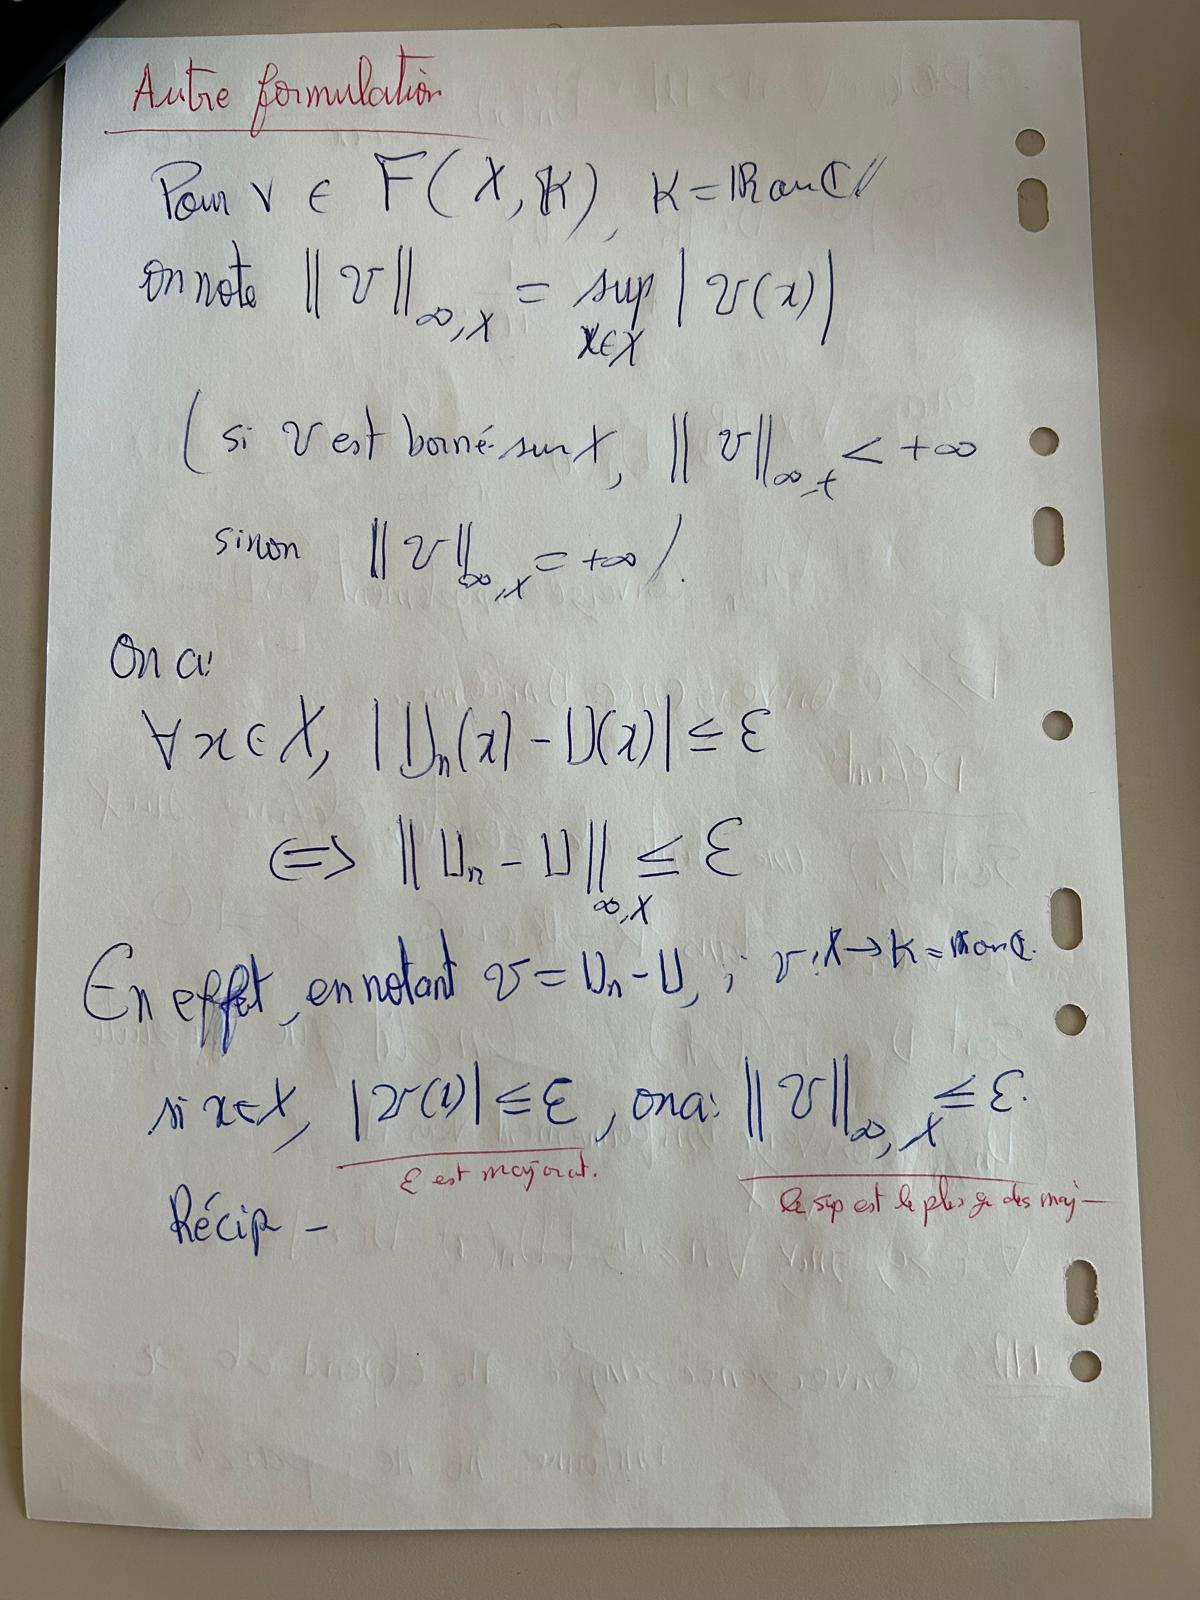 Autre formulation
Pour v ∈ F(X, K), K = ℝ ou ℂ //
on note ‖v‖∞,X = sup |v(x)|
x∈X
( si v est borné sur X, ‖v‖∞,X < +∞
sinon ‖v‖∞,X = +∞ ).
On a:
∀ x ∈ X, |Un(x) - U(x)| ≤ ε
⟺ ‖Un - U‖∞,X ≤ ε
En effet, en notant v = Un - U, ; v: X → K = ℝ ou ℂ.
si x∈X, |v(x)| ≤ ε, on a: ‖v‖∞,X ≤ ε.
ε est majorat. le sup est le plus des maj -
Récip -